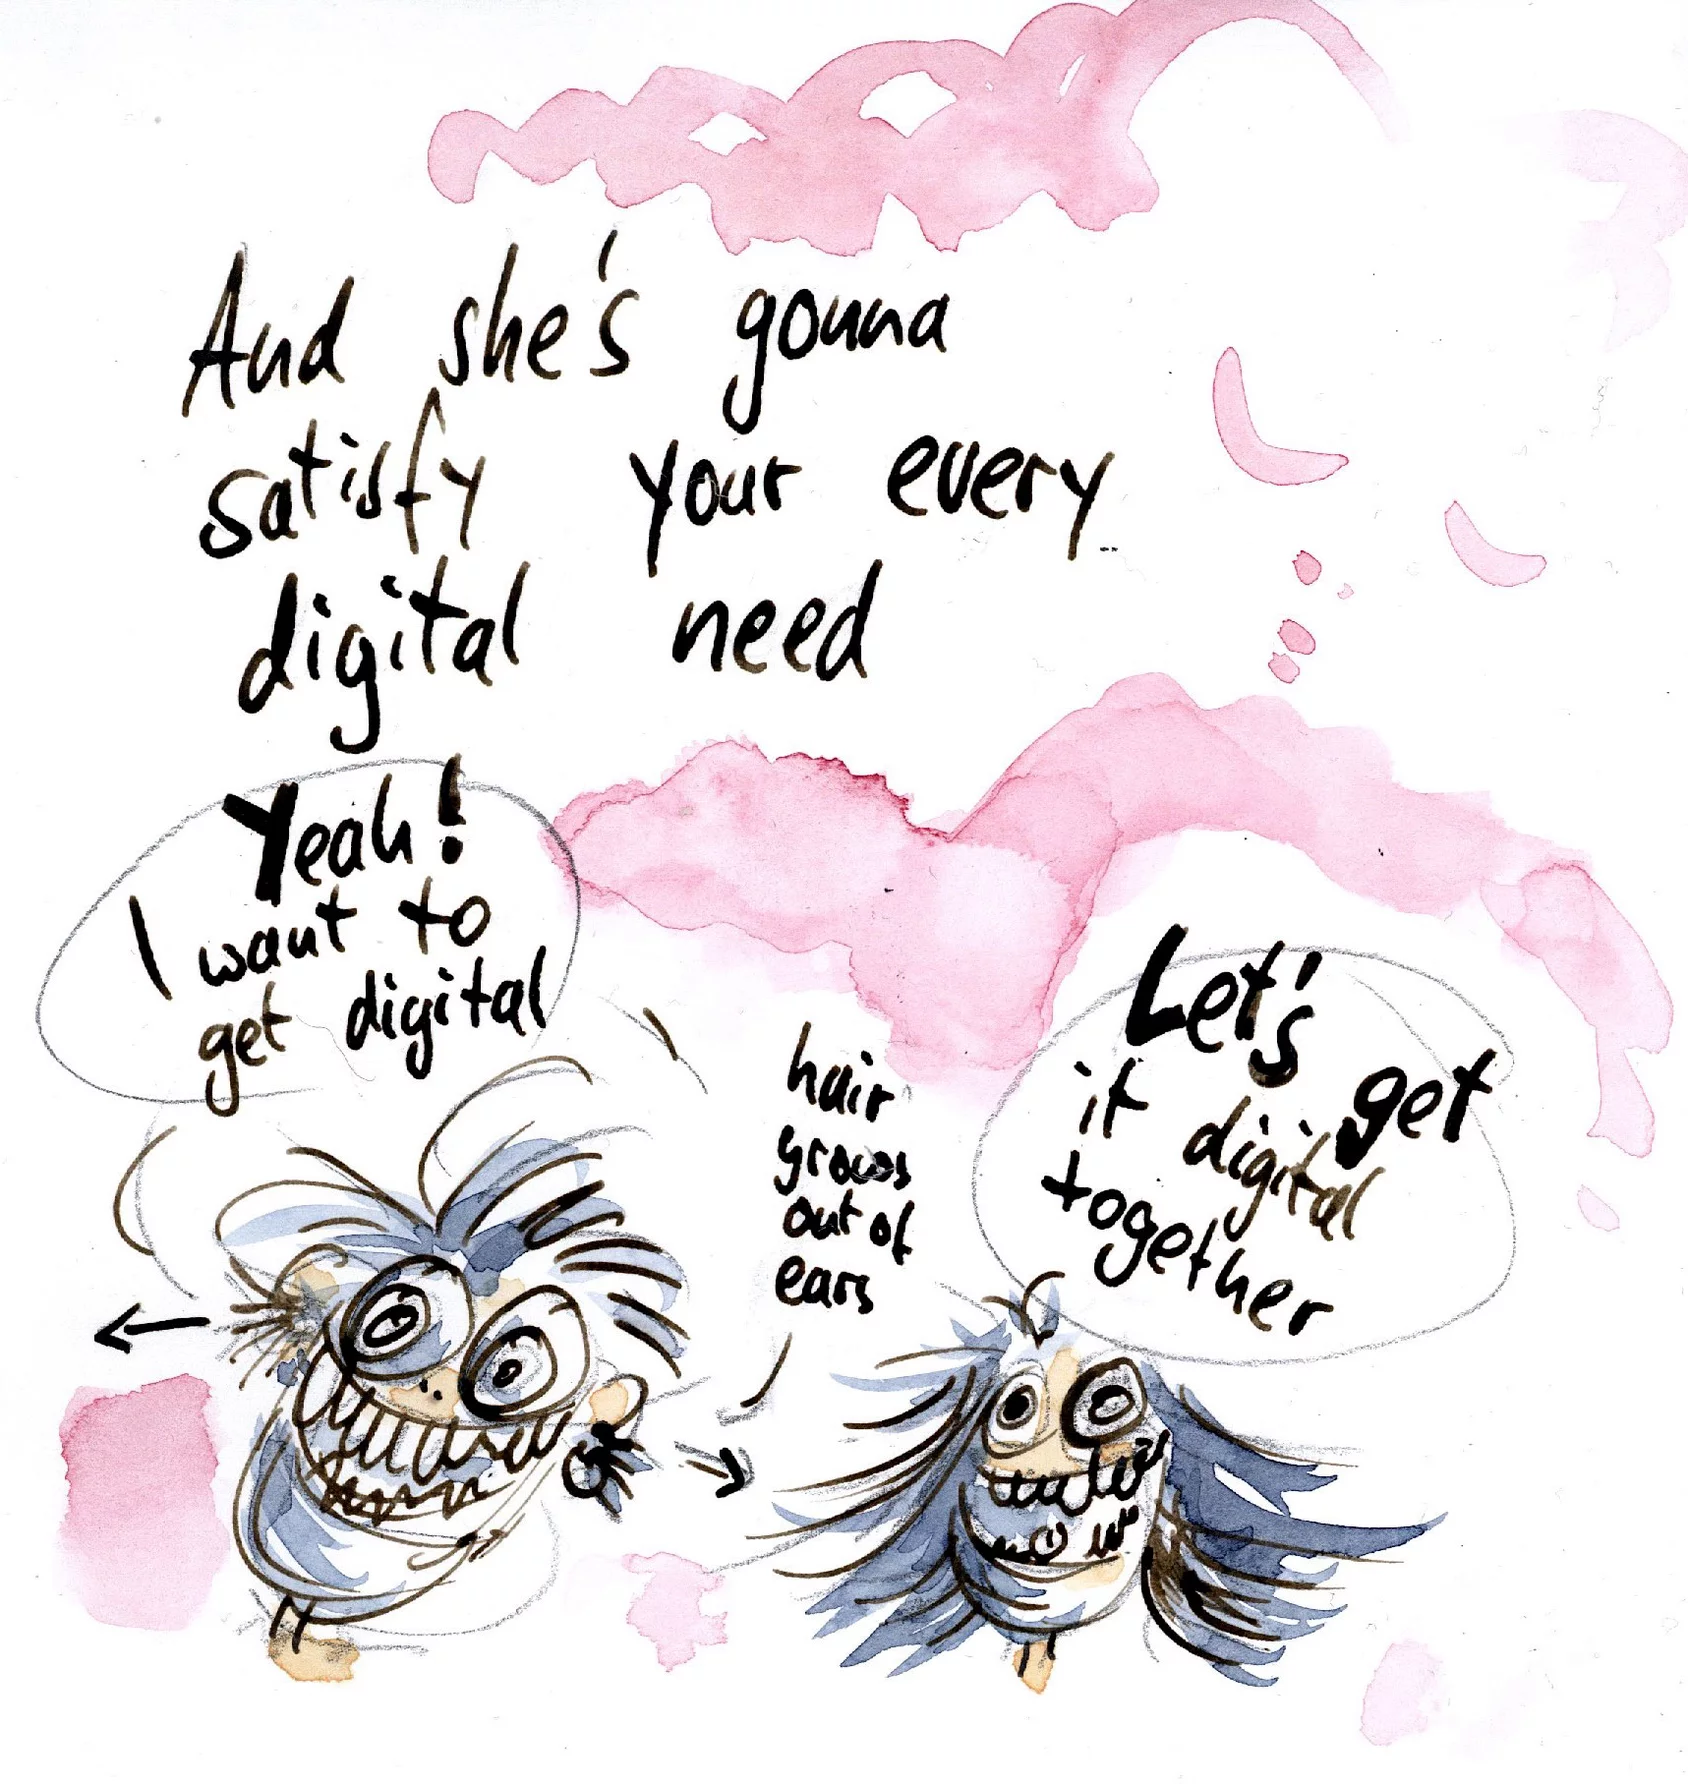 And she's gonna
satisfy your every
digital need
Yeah!
I want to
get digital
hair
grows
out of
ears
Let's get
it digital
together